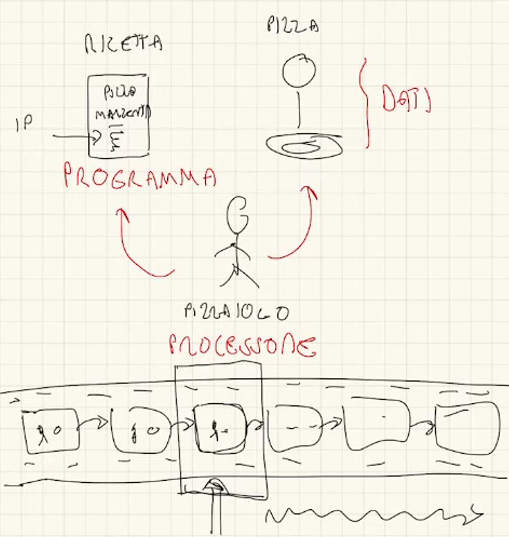 RICETTA
PIZZA
PIZZA
IP
DATI
PROGRAMMA
PIZZAIOLO
PROCESSORE